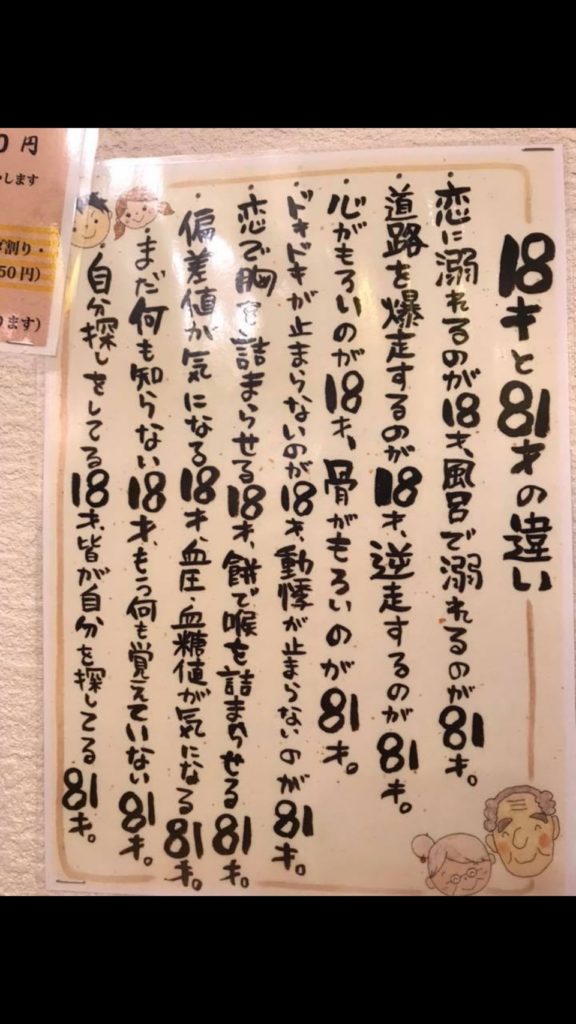 18才と81才の違い
・恋に溺れるのが18才、風呂で溺れるのが81才。
・道路を爆走するのが18才、逆走するのが81才。
・心がもろいのが18才、骨がもろいのが81才。
・ドキドキが止まらないのが18才、動悸が止まらないのが81才。
・恋で胸を詰まらせる18才、餅で喉を詰まらせる81才。
・偏差値が気になる18才、血圧・血糖値が気になる81才。
・まだ何も知らない18才、もう何も覚えていない81才。
・自分探しをしてる18才、皆が自分を探してる81才。
0円
します
割り・
50円)
ります)